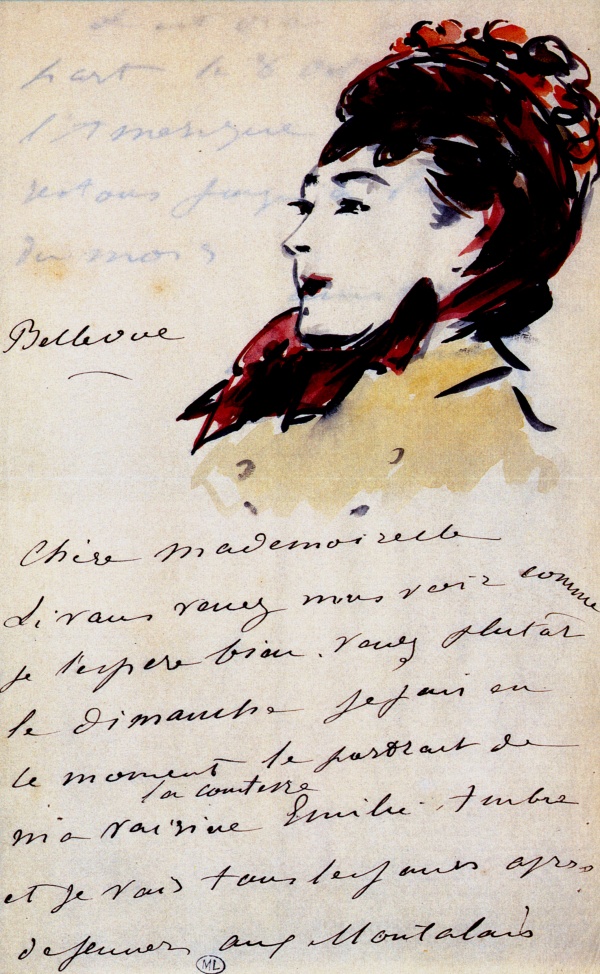 part le 8
l'Amerique
restons
du mois
Bellevue
Chere mademoiselle
Si vous venez nous voir comme
je l'espere bien. venez plutôt
le dimanche je fais en
ce moment le portrait de
la comtesse
ma voisine Emilie Ambre
et je vais tous les jours apres
dejeuner aux Montalais
ML